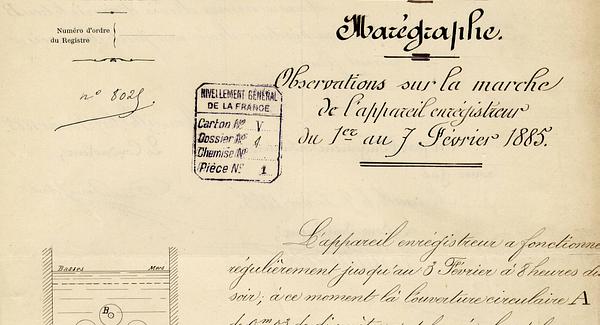 Marégraphe.
Numéro d'ordre
du Registre
Observations sur la marche
de l'appareil enrégistreur
du 1er au 7 Février 1885.
n° 8025
NIVELLEMENT GÉNÉRAL
DE LA FRANCE
Carton No V
Dossier No
Chemise No
Pièce No 1
L'appareil enrégistreur a fonctionné
régulièrement jusqu'au 3 Février à 8 heures du
soir; à ce moment là l'ouverture circulaire A
Basses Mers
B